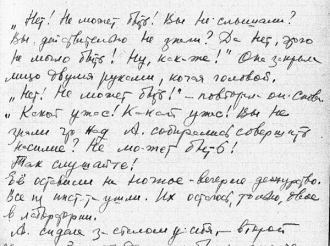 „Нет! Не может быть! Вы не слышали?
Вы действительно не знали? Да нет, этого
не могло быть! Ну, как-же!" Она закрыла
лицо двумя руками, качая головой.
„Нет! Не может быть!" – повторяла он снова
„Какой ужас! Какой ужас! Вы не
знали что над А. собирались совершить
насилие? Не может быть!
Так слушайте!
Её оставили на ночное-вечернее дежурство.
Все ушли. Их осталось, только, двое
в лаборатории.
А. сидела за столом у себя,